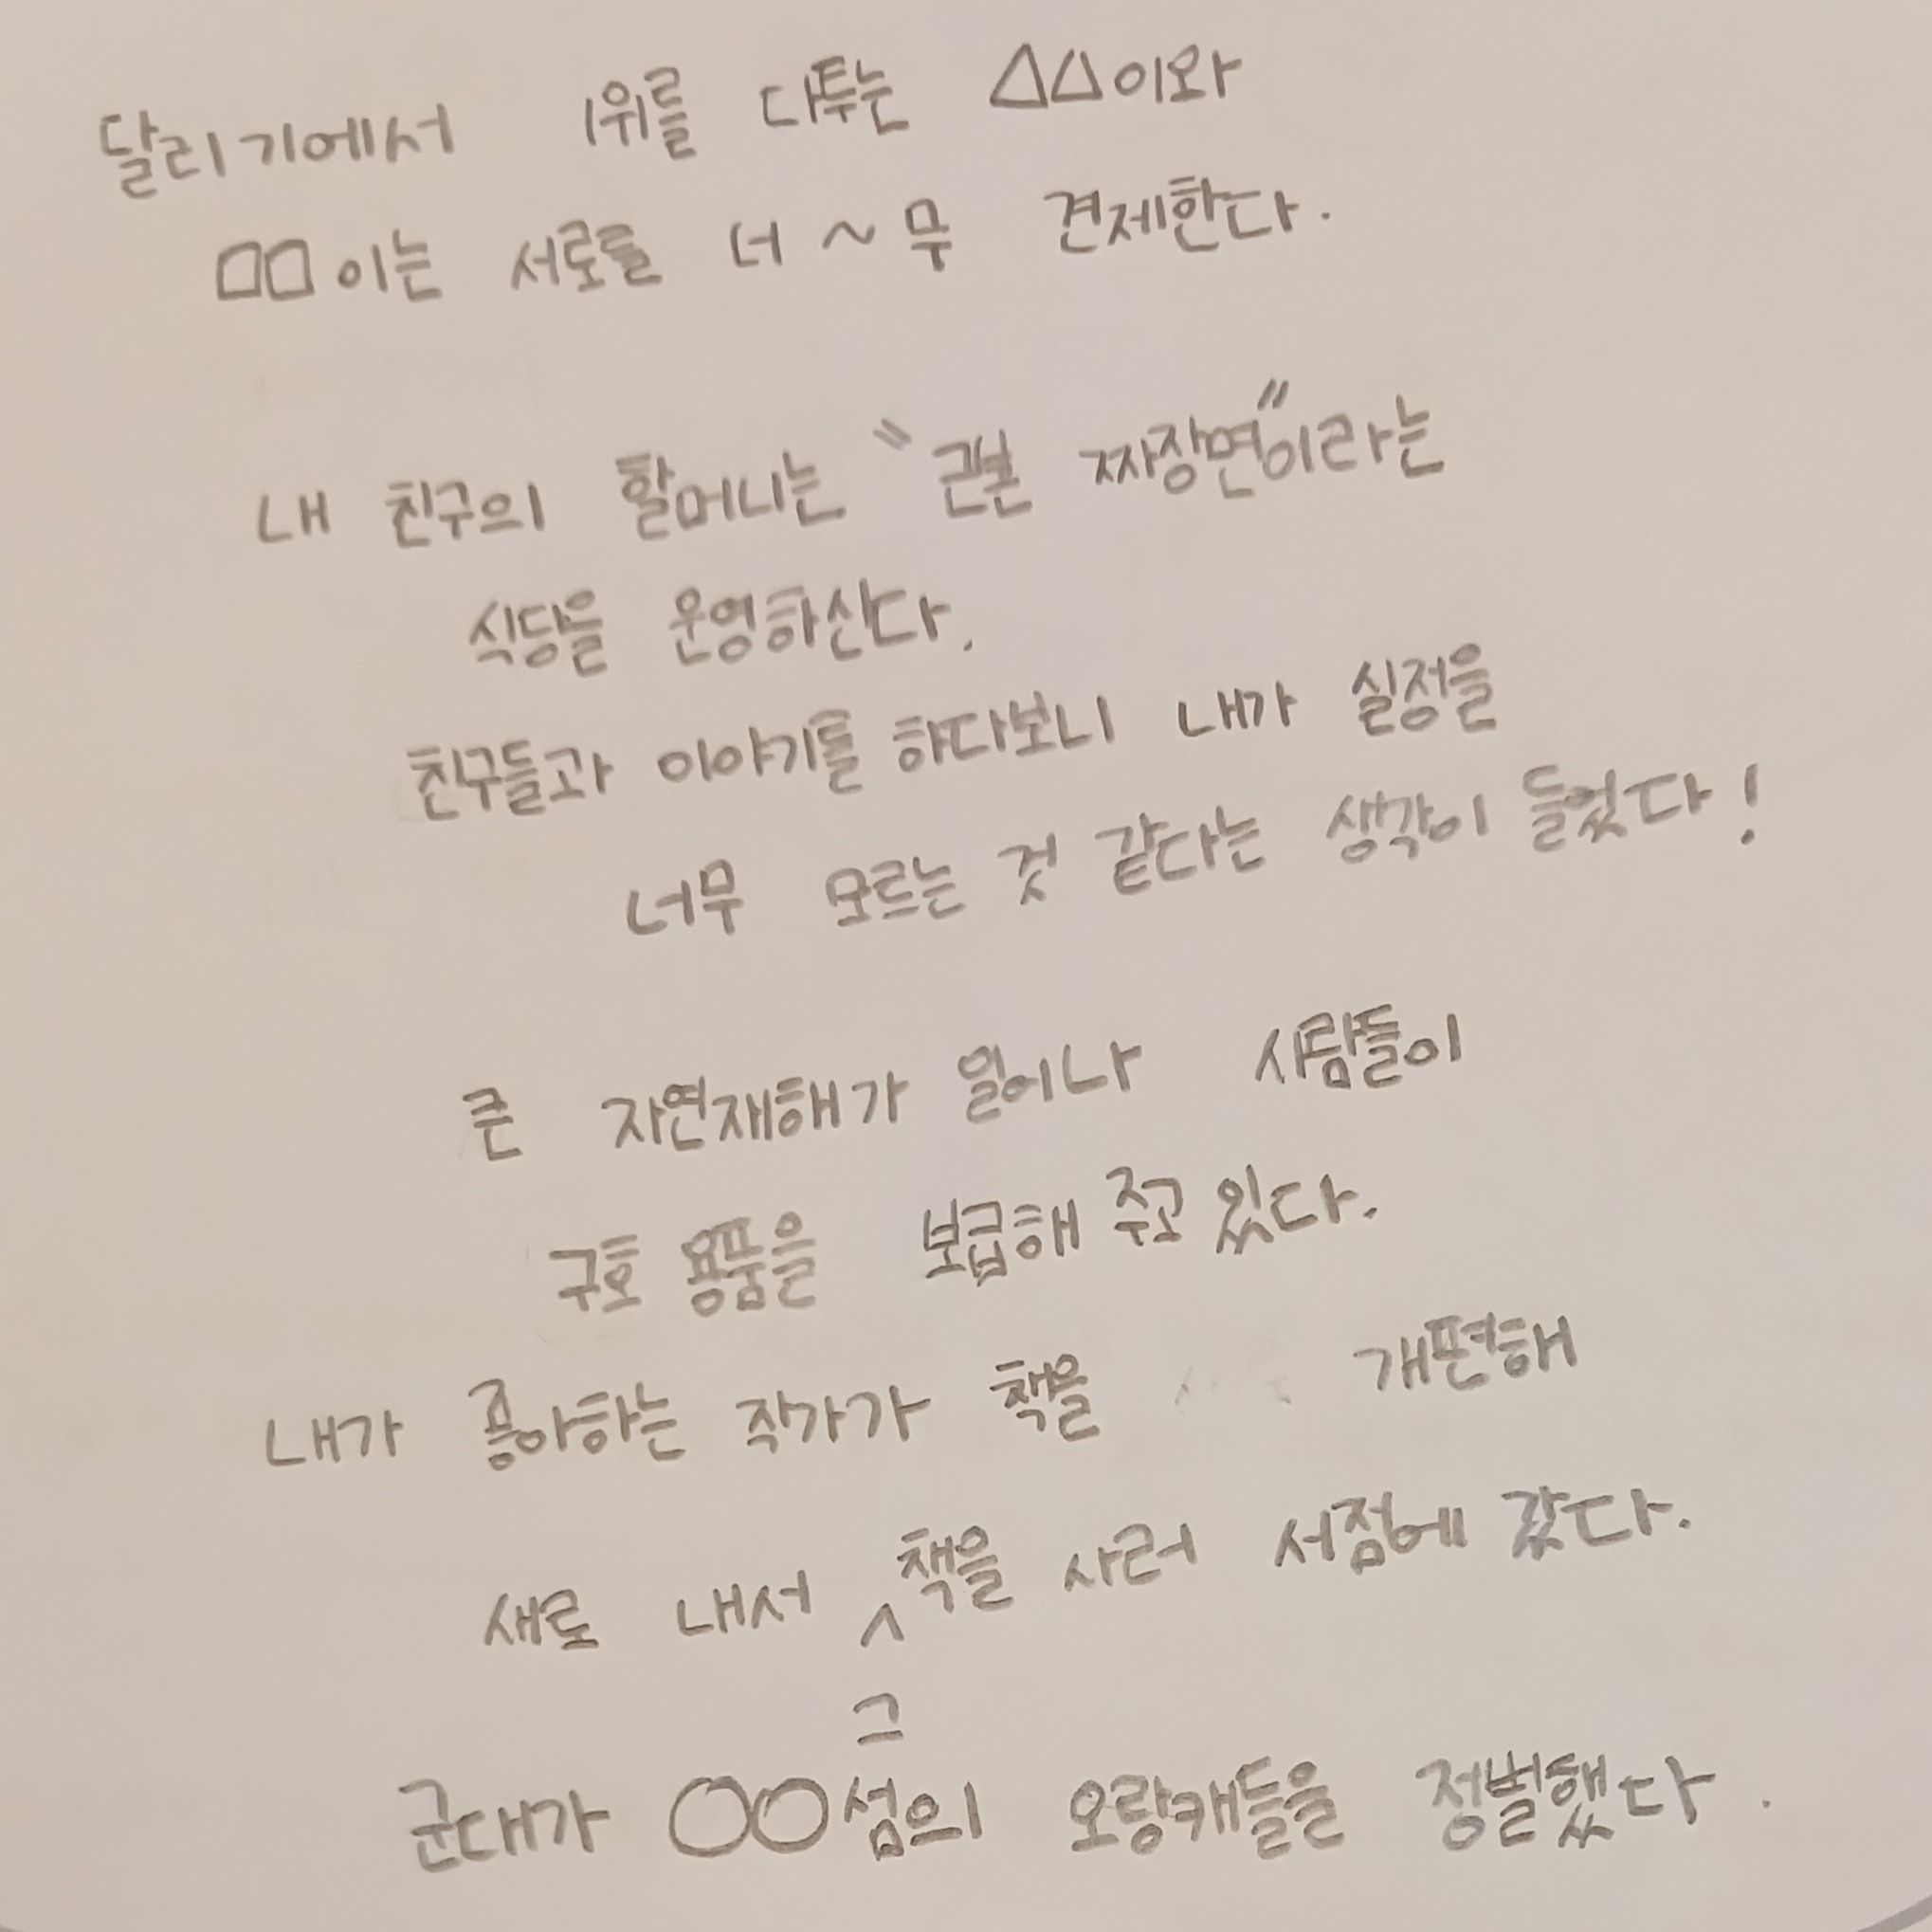 달리기에서 1위를 다투는 △△이와
□□이는 서로를 너~무 견제한다.
내 친구의 할머니는 "근본 짜장면"이라는
식당을 운영하신다.
친구들과 이야기를 하다보니 내가 실정을
너무 모르는 것 같다는 생각이 들었다!
큰 자연재해가 일어나 사람들이
구호 용품을 보급해 주고 있다.
내가 좋아하는 작가가 책을 개편해
새로 내서 ^ 책을 사러 서점에 갔다.
그
군대가 ○○섬의 오랑캐들을 정벌했다.